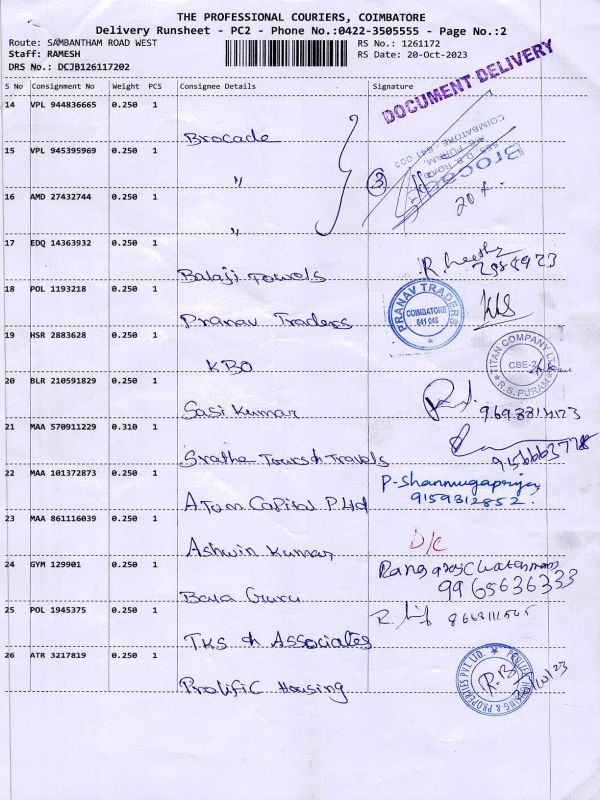 THE PROFESSIONAL COURIERS, COIMBATORE
Delivery Runsheet - PC2 - Phone No.:0422-3505555 - Page No.:2
Route: SAMBANTHAM ROAD WEST
RS No.: 1261172
Staff: RAMESH
RS Date: 20-Oct-2023
DRS No.: DCJB126117202
DOCUMENT DELIVERY
S No Consignment No Weight PCS Consignee Details Signature
14 VPL 944836665 0.250 1
Brocade
15 VPL 945395969 0.250 1
"
3
Brocade
D.B. ROAD
R.S. PURAM,
COIMBATORE. 641 002
16 AMD 27432744 0.250 1
"
17 EDQ 14363932 0.250 1
Balaji Towels
18 POL 1193218 0.250 1
Pranav Traders
PRANAV TRADERS
COIMBATORE
19 HSR 2883628 0.250 1
KBO
TITAN COMPANY LTD
CBE-2
R.S. PURAM
20 BLR 210591829 0.250 1
Sasi Kumar
21 MAA 570911229 0.310 1
Srathe Tours & Travels
22 MAA 101372873 0.250 1
Atum Capital P Ltd
P-Shanmugapriya
9159312852.
23 MAA 861116039 0.250 1
Ashwin Kumar
D/C
24 GYM 129901 0.250 1
Bala Guru
9965636333
25 POL 1945375 0.250 1
TKS & Associates
26 ATR 3217819 0.250 1
Prolific Housing
PROLIFIC HOUSING & PROPERTIES PVT. LTD.